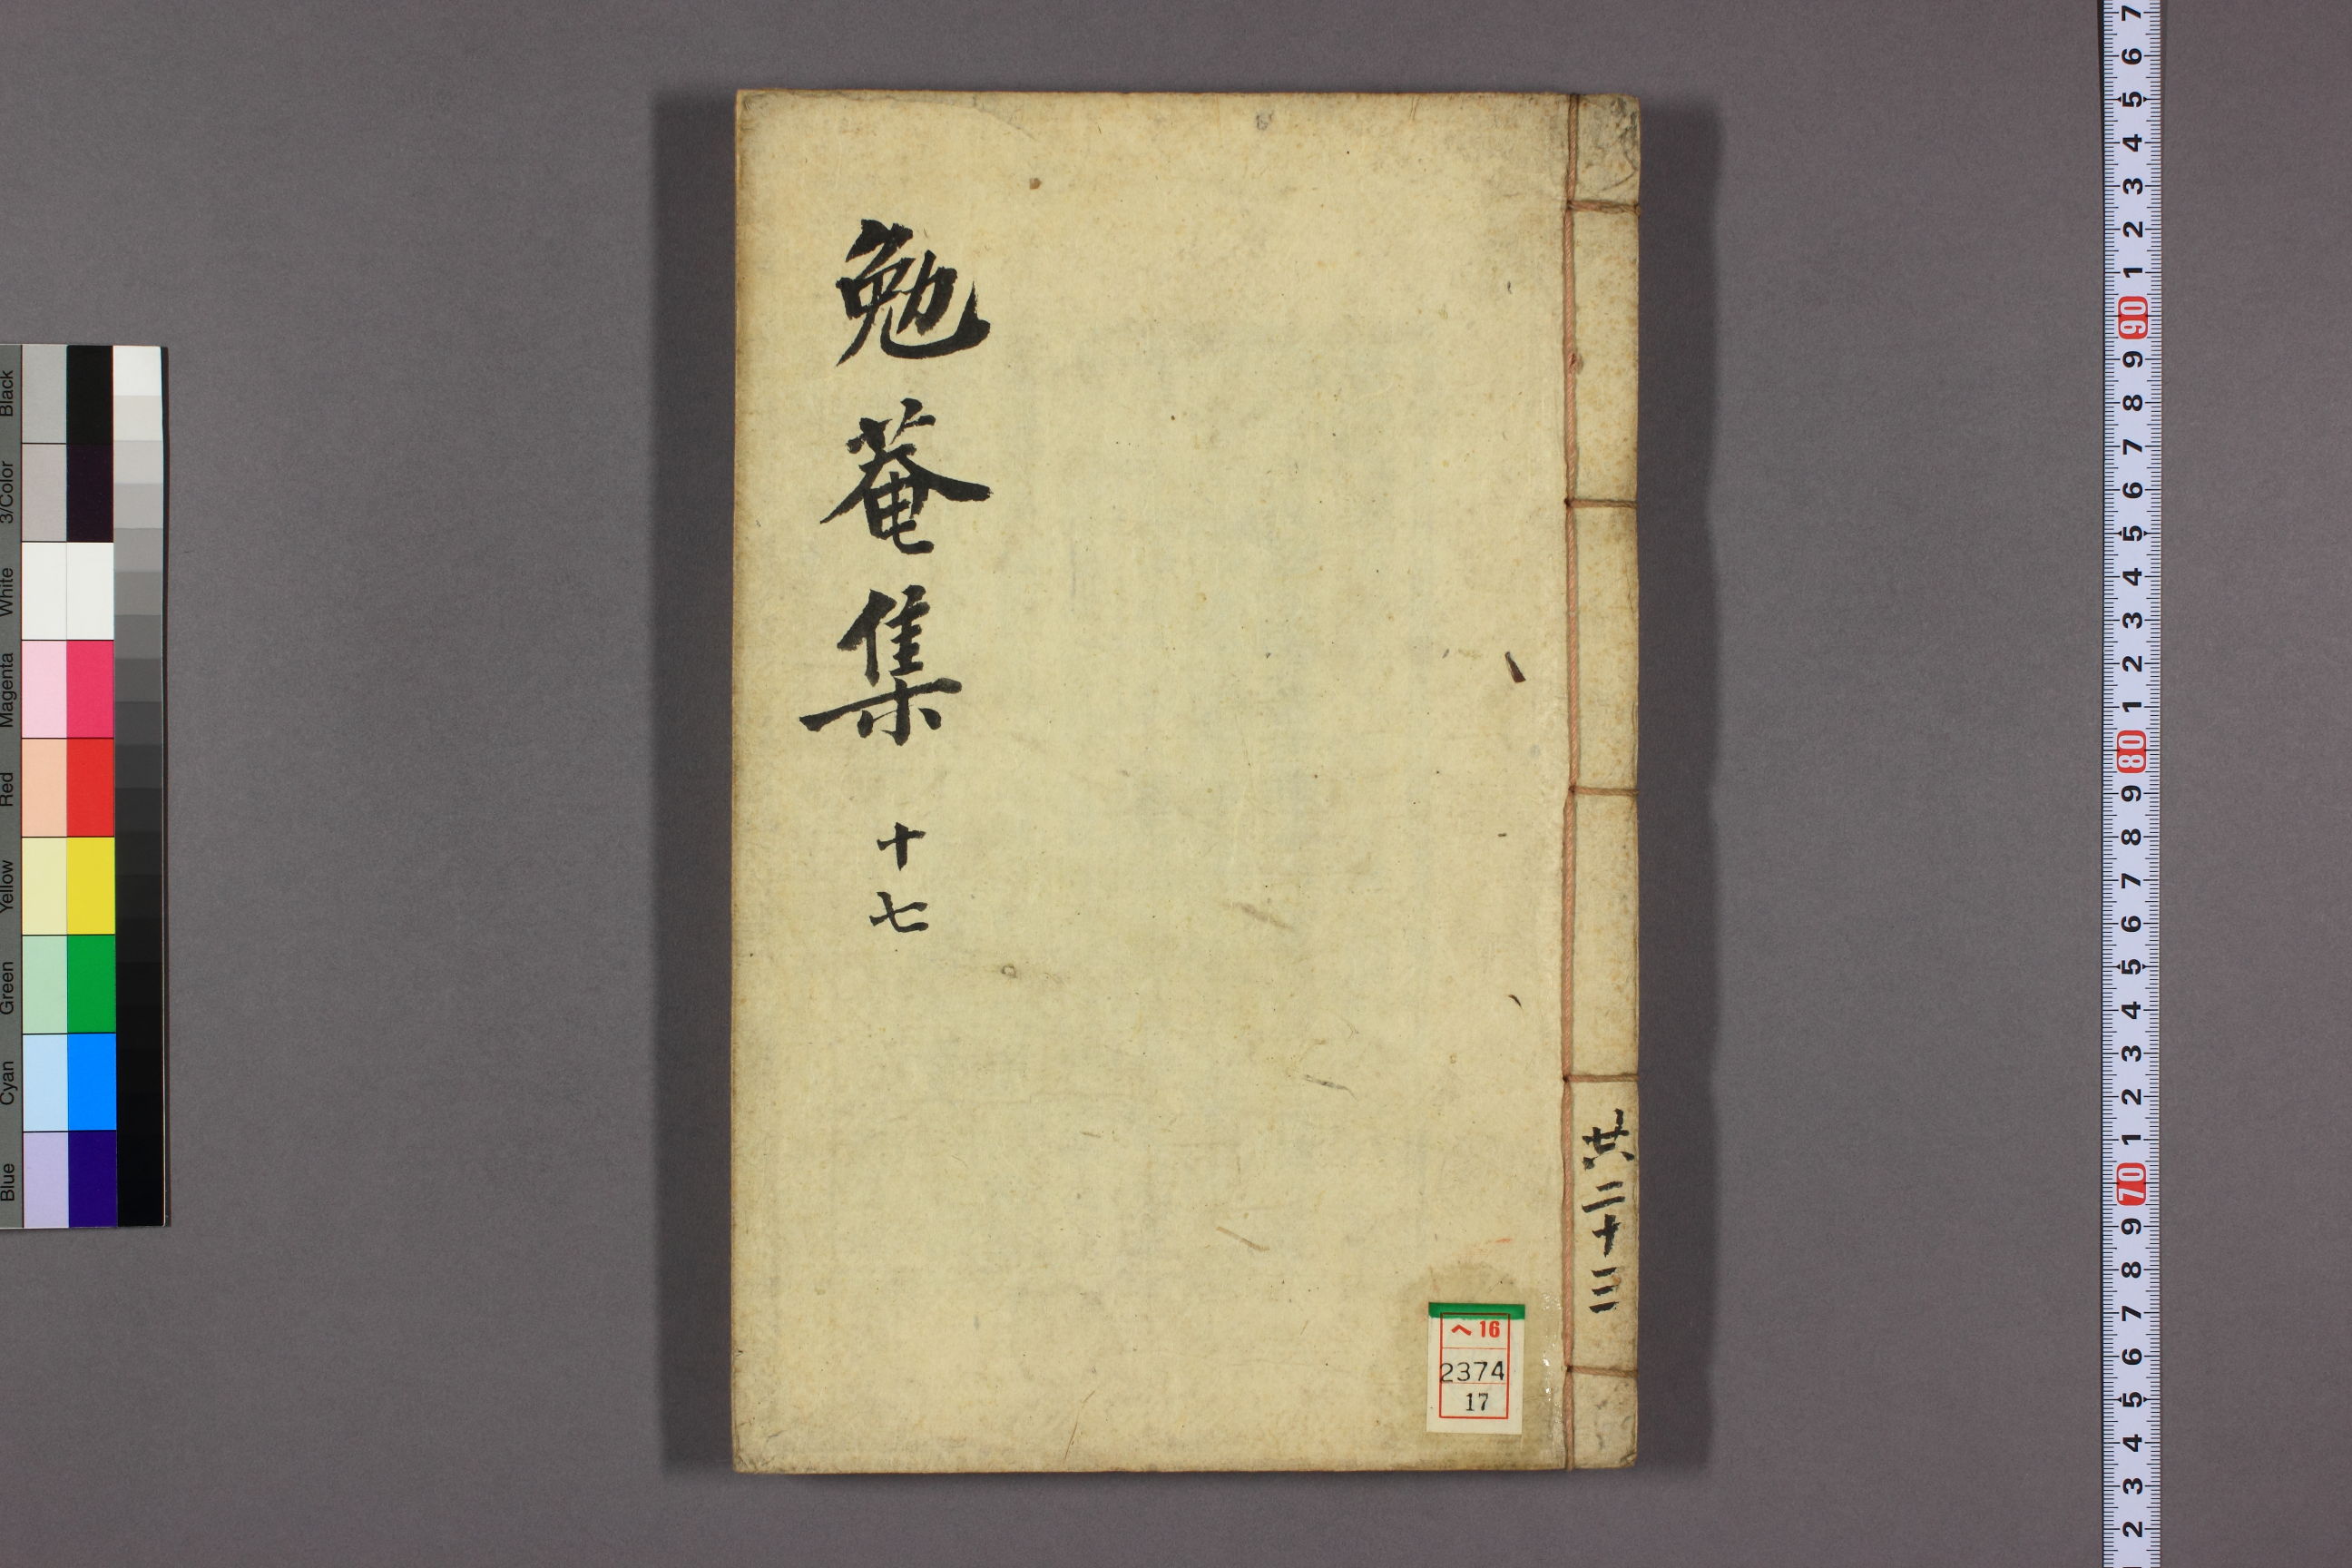 勉菴集 十七
共二十三
ヘ16
2374
17
Black
3/Color
White
Magenta
Red
Yellow
Green
Cyan
Blue
7
6
5
4
3
2
1
90
9
8
7
6
5
4
3
2
1
80
9
8
7
6
5
4
3
2
1
70
9
8
7
6
5
4
3
2